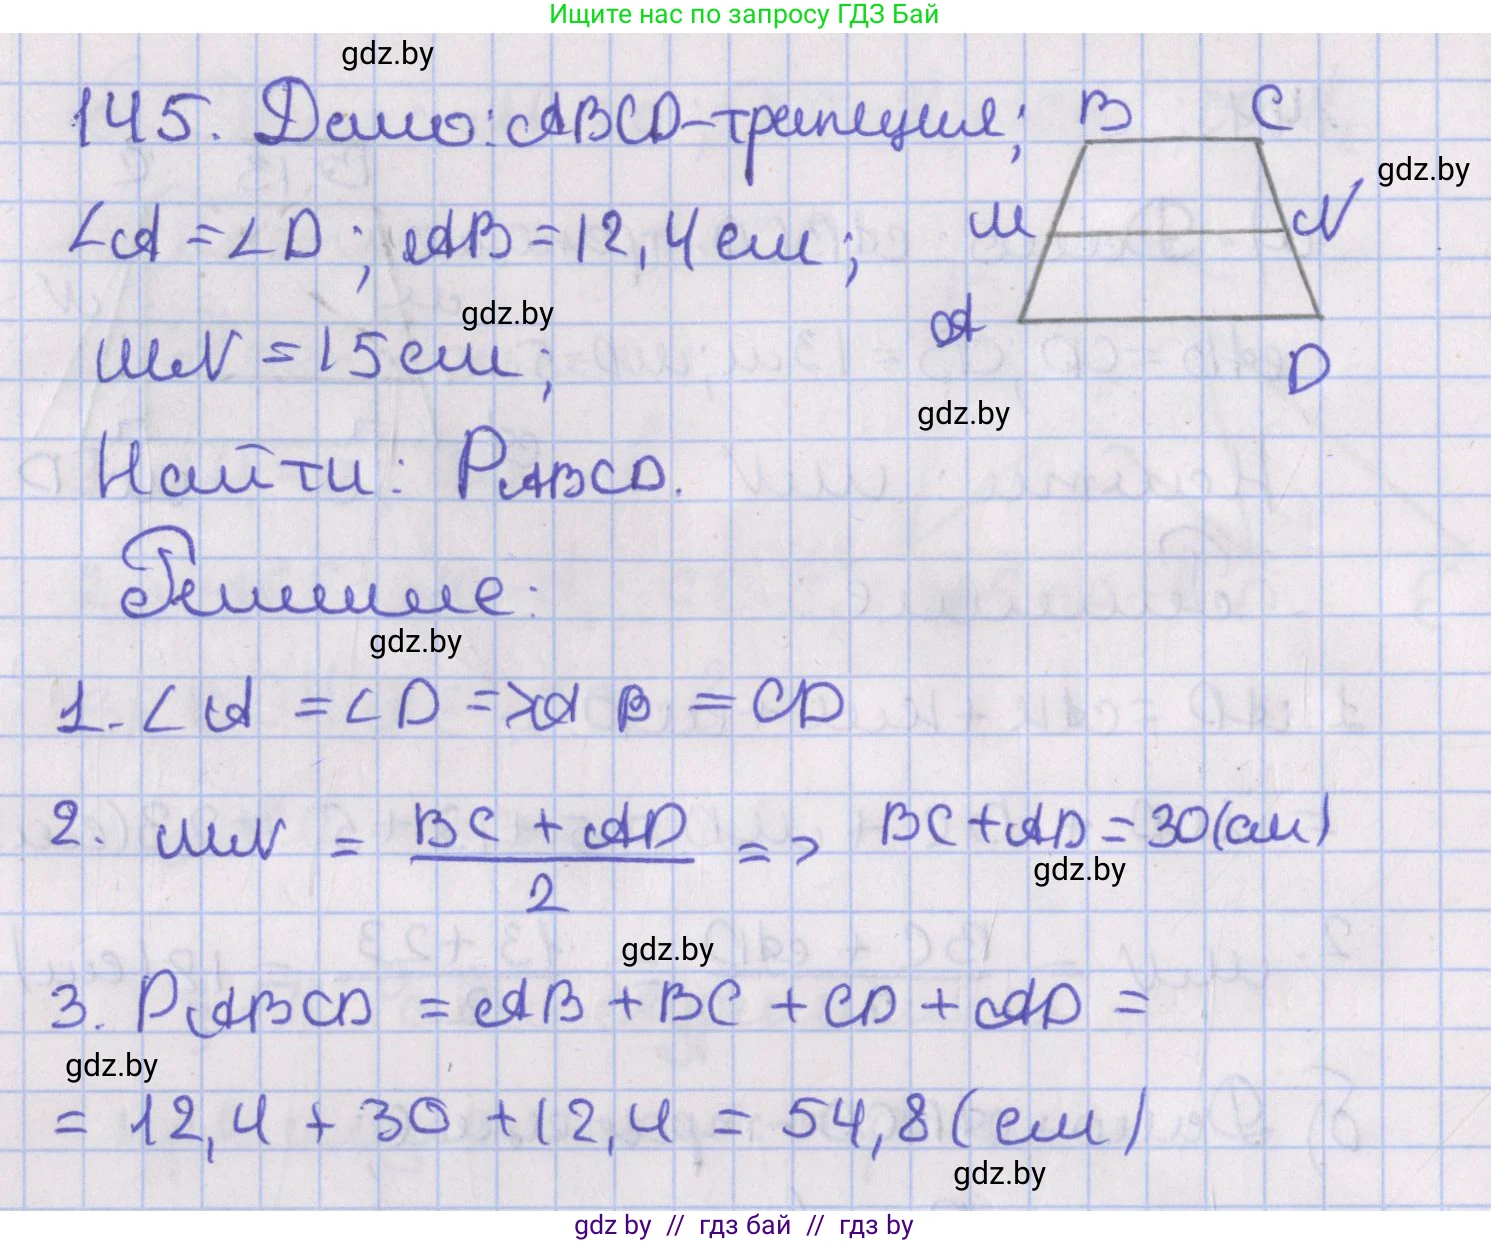 Ищите нас по запросу ГДЗ Бай
gdz.by
145. Дано: ABCD-трапеция;
B C
gdz.by
∠A = ∠D; AB = 12,4 см;
M N
gdz.by
A
MN = 15 см;
D
gdz.by
Найти: PABCD.
Решение:
gdz.by
1. ∠A = ∠D => AB = CD
2. MN = BC + AD / 2 => BC + AD = 30 (см)
gdz.by
gdz.by
3. PABCD = AB + BC + CD + AD =
gdz.by
= 12,4 + 30 + 12,4 = 54,8 (см)
gdz.by
gdz by // гдз бай // гдз by